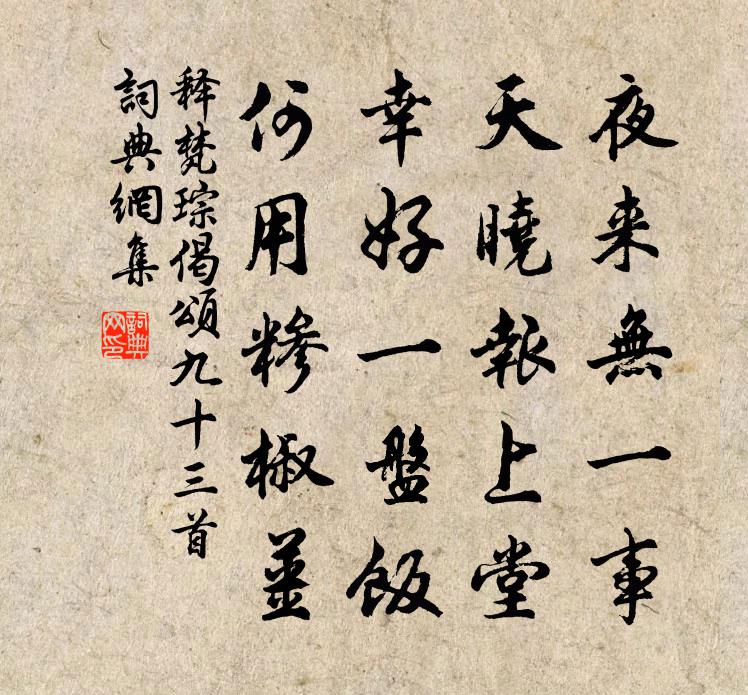 夜来無一事
天曉報上堂
幸好一盤飯
何用糝椒薑
释梵琮偈頌九十三首
詞典網集
詞典网印